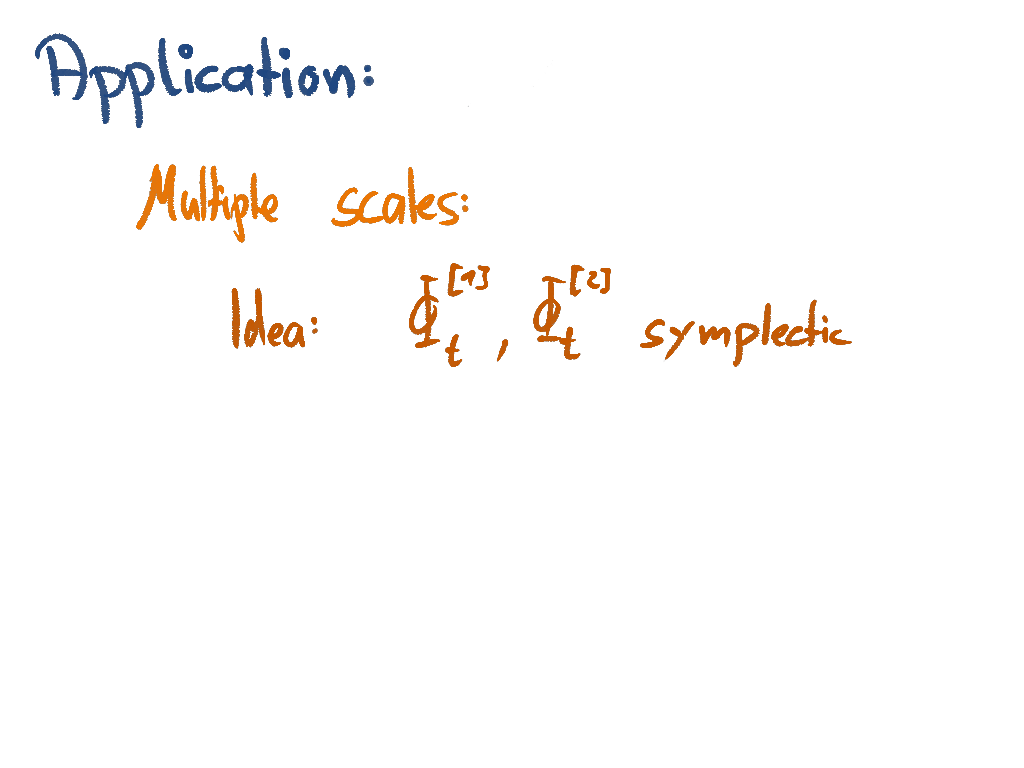 Application:
Multiple scales:
Idea: Φ_t^[1], Φ_t^[2] symplectic